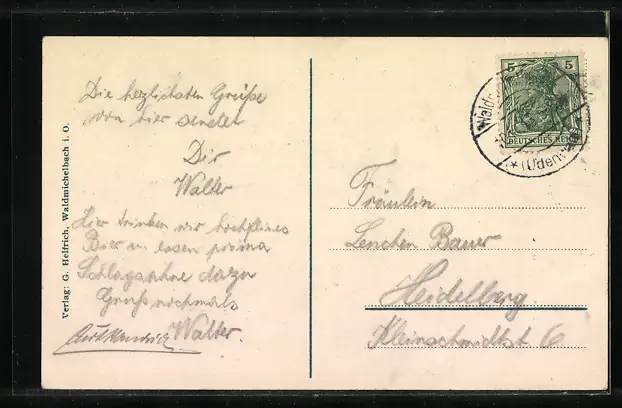 Die herzlichsten Grüße
von hier sendet
Dir
Walter
Hier trinken wir hochfeines
Bier u. essen prima
Schlagsahne dazu
Gruß nochmals
Walter.
Verlag: G. Helfrich, Waldmichelbach i. O.
5 5
DEUTSCHES REICH
Wald
* (Oden
Fräulein
Lenchen Bauer
Heidelberg
Kleinschmidtst 6